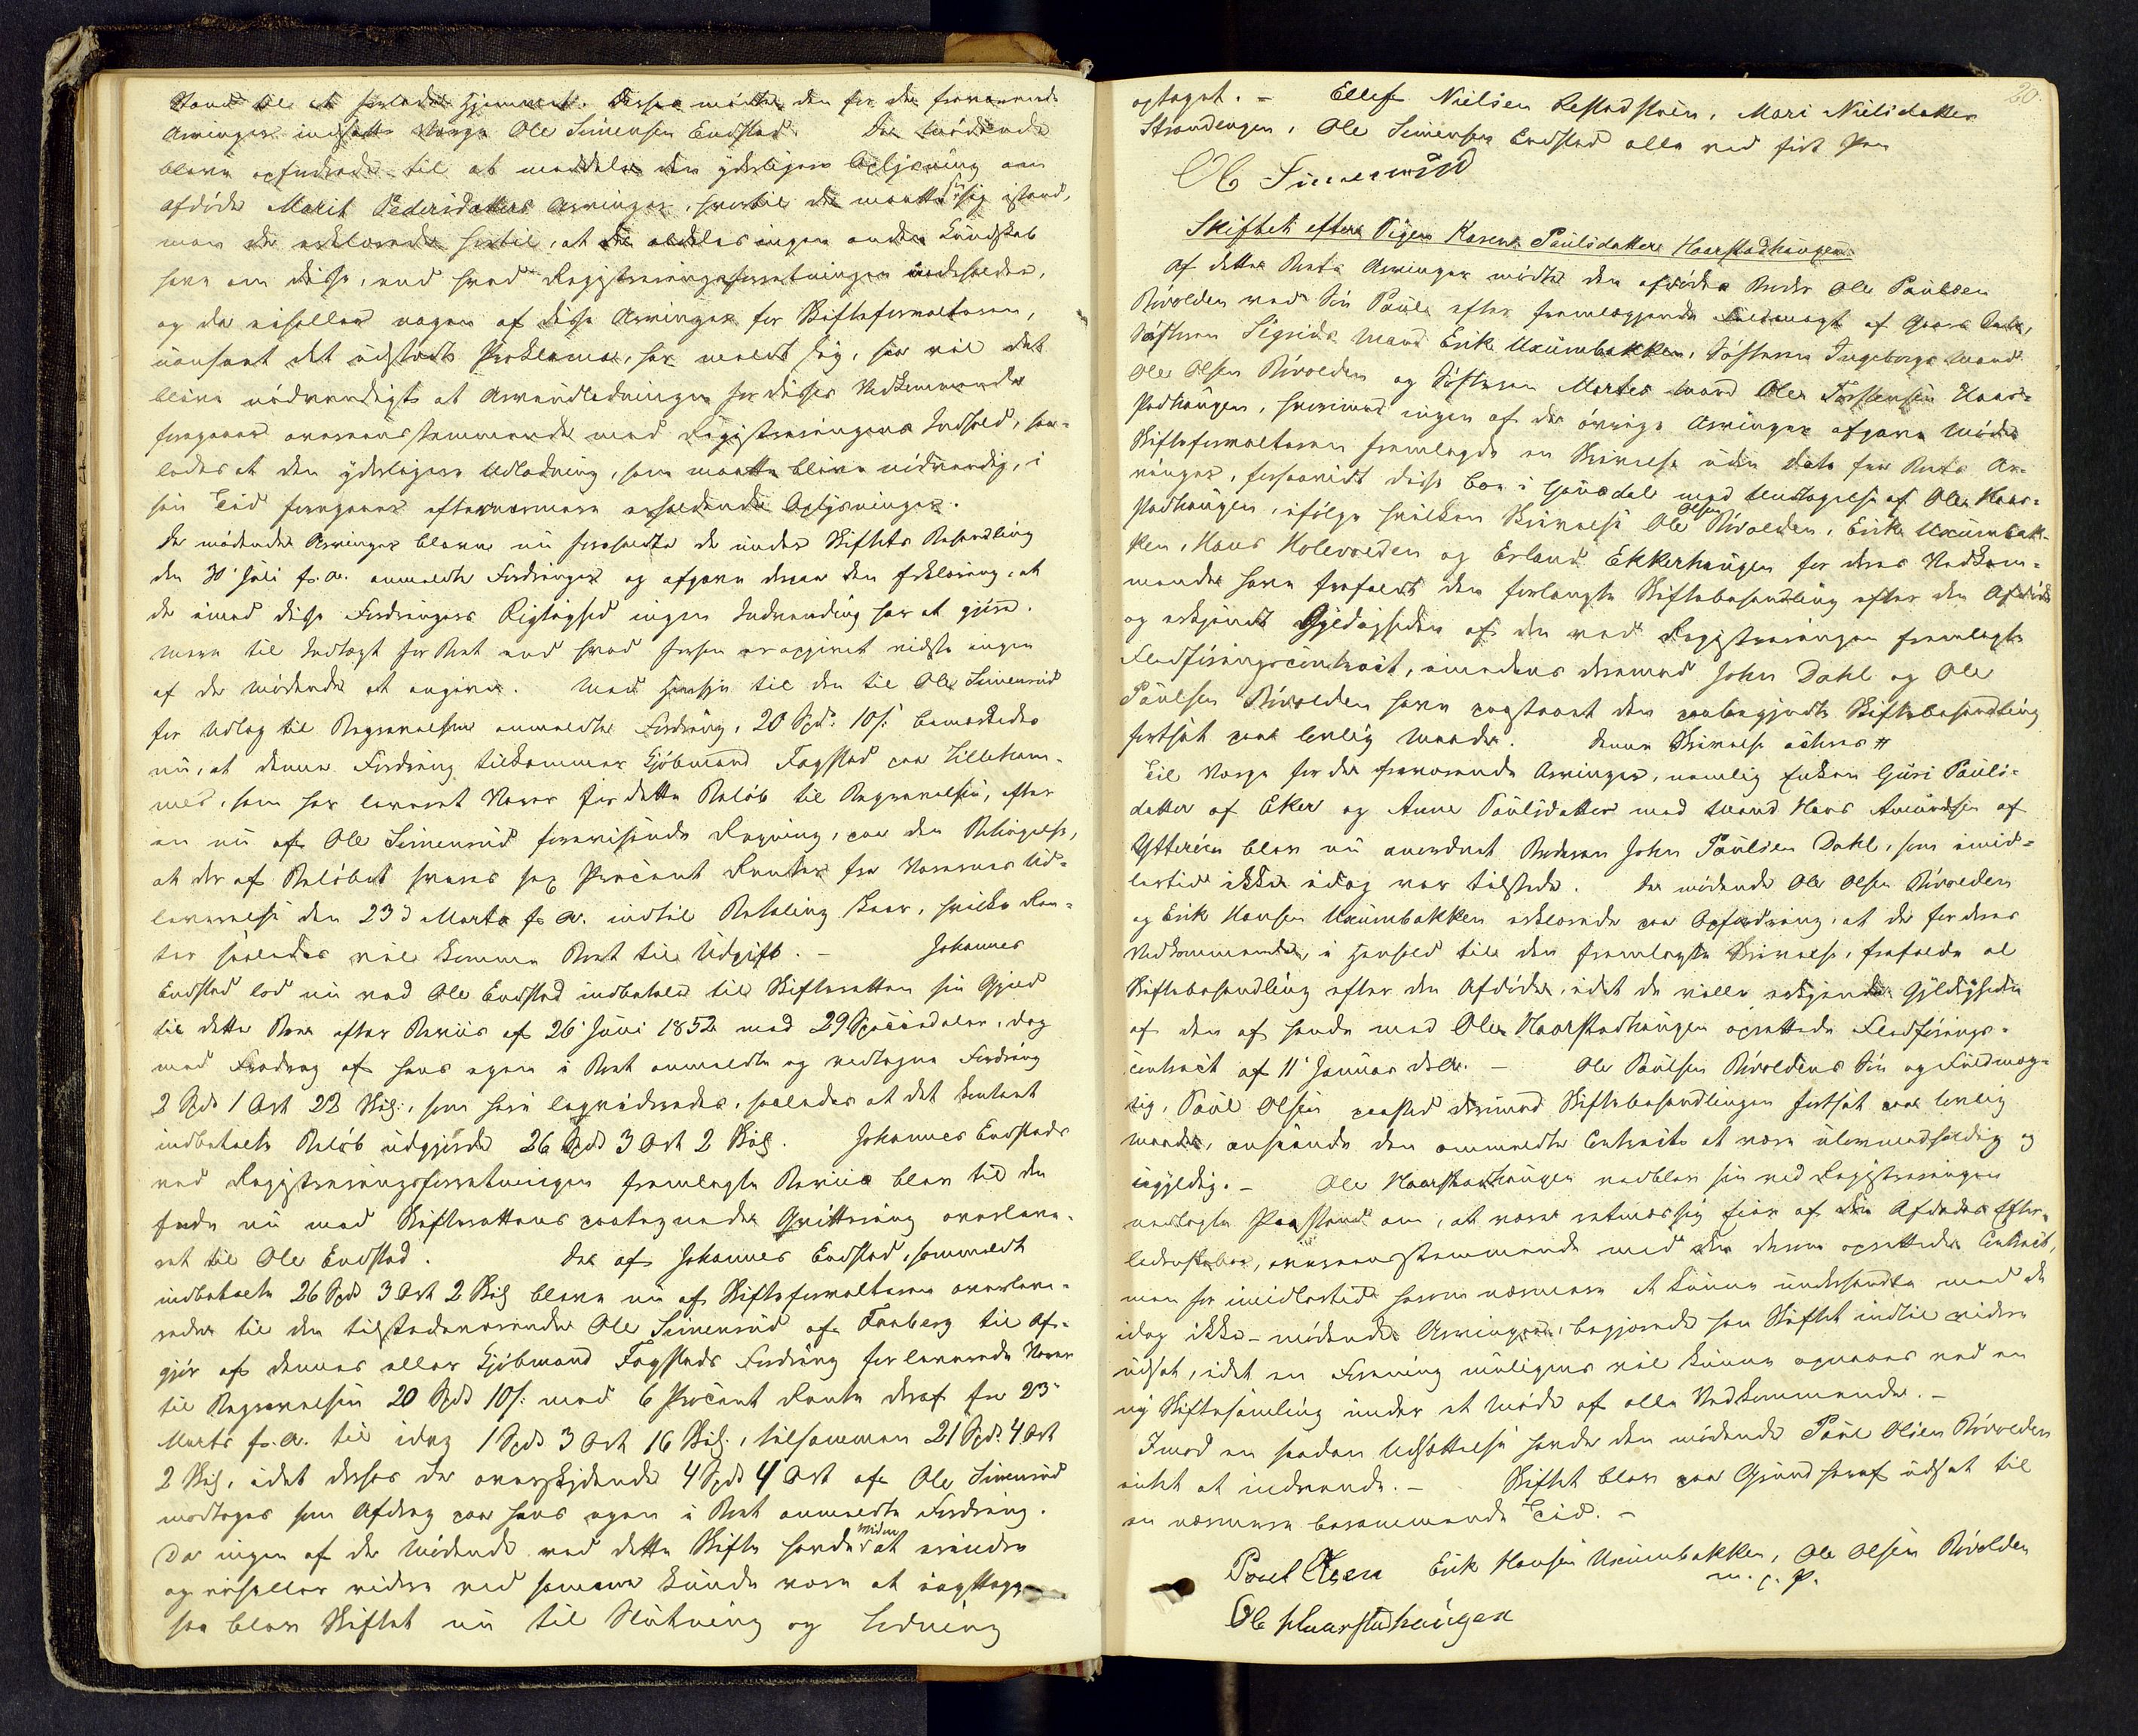 Stand til at forlade Hjemmet. Desuden mødte den for de fraværende
Arvinger indsatte Værge Ole Simensen Endstad. De mødende
bleve opfordrede til at meddele den yderligere Oplysning om
afdøde Marit Pedersdatters Arvinger, hvortil de maatte see sig istand,
men de erklærede hertil, at de aldeles ingen anden Kundskab
have om disse, end hvad Registreringsforretningen indeholder,
og da eiheller nogen af disse Arvinger for Skifteforvalteren,
uanseet det udstædte Proklama, har meldt sig, saa vil det
blive nødvendigt at Arveudlodningen for disses Vedkommende
foregaaer overeensstemmende med Registreringens Indhold, saa-
ledes at den yderligere Udlodning, som maatte blive nødvendig, i
sin Tid foregaaer efter nærmere erholdende Oplysninger.
De mødende Arvinger bleve nu foreholdte de under Skiftets Behandling
den 30' Juli f. A. anmeldte Fordringer og afgave derpaa den Erklæring, at
de imod disse Fordringers Rigtighed ingen Indvending har at gjøre.
Mere til Indtægt for Boet end hvad forhen er opgivet vidste ingen
af de mødende at angive. Med Hensyn til den til Ole Simensrud
for Udlæg til Begravelsen anmeldte Fordring, 20 Spd. 10 s. bemærkedes
nu, at denne Fordring tilkommer Kjøbmand Fagstad paa Lilleham-
mer, som har leveret Varer for dette Beløb til Begravelsen, efter
en nu af Ole Simensrud foreviisende Regning, paa den Betingelse,
at der af Beløbet svares sex Procent Renter fra Varernes Ud-
leverelse den 23d Marts f. A. indtil Betaling skeer, hvilke Ren-
ter saaledes vil komme Boet til Udgift. – Johannes
Endstad lod nu ved Ole Endstad indbetale til Skifteretten sin Gjæld
til dette Boe efter Beviis af 26' Juni 1852 med 29 Speciedaler, dog
med Fradrag af hans egen i Boet anmeldte og vedtagne Fordring
2 Spd 1 Ort 22 Skill., som her lagvidredes, saaledes at det contant
indbetalte Beløb udgjorde 26 Spd 3 Ort 2 Skill. Johannes Endstads
ved Registreringsforretningen fremlagte Beviis blev til den
Ende nu med Skifterettens paategnede Qvittering overleve-
ret til Ole Endstad. De af Johannes Endstad, sommeldt
indbetalte 26 Spd 3 Ort 2 Skill bleve nu af Skifteforvalteren overleve-
rede til den tilstedeværende Ole Simensrud af Faaberg til Af-
gjør af dennes eller Kjøbmand Fagstads Fordring for leverede Varer
til Begravelsen 20 Spd 10 s. med 6 Procent Rente deraf fra 23'
Marts f. A. til idag 1 Spd 3 Ort 16 Skill., tilsammen 21 Spd. 4 Ort
2 Skill, idet derhos de overskydende 4 Spd 4 Ort af Ole Simensrud
modtoges som Afdrag paa hans egen i Boet anmeldte Fordring.
Da ingen af de Mødende ved dette Skifte havde videre at erindre
og eiheller videre ved samme kunde være at iagttage,
saa blev Skiftet nu til Slutning og Udlodning
20.
optaget. – Ellef Nielsen Restadstuen, Mari Nielsdatter
Strandengen, Ole Simensen Endstad alle ved ført Pen
Ole Simensrud
Skiftet efter Pigen Karen Paulsdatter Haarstadhaugen.
Af dette Boets Arvinger mødte den afdødes Broder Ole Paulsen
Rivolden ved Søn Paul efter fremlæggende Fuldmagt af Gaars Dato,
Søsteren Sigrids Mand Erik Uxumbakken, Søsteren Ingeborgs Mand
Ole Olsen Rivolden og Søsteren Marthes Mand Ole Torstensen Haar-
stadhaugen, hvorimod ingen af de øvrige Arvinger afgave Møde
Skifteforvalteren fremlagde en Skrivelse uden Dato fra Boets Ar-
vinger, forsaavidt disse boe i Gausdal med Undtagelse af Ole Haar-
stadhaugen, ifølge hvilken Skrivelse Ole Olsen Rivolden, Erik Uxumbak-
ken, Hans Holevolden og Erland Ekkerhaugen for deres Vedkom-
mende have frafaldt den forlangte Skiftebehandling efter den Afdøde
og erkjendt Gyldigheden af den ved Registreringen fremlagte
Fledføringscontract, imedens derimod John Dahl og Ole
Paulsen Rivolden have paastaaet den paabegyndte Skiftebehandling
fortsat paa lovlig Maade. Denne Skrivelse actaes #
Til Værge for de fraværende Arvinger, nemlig Enken Guri Pauls-
datter af Eker og Anne Paulsdatter med Mand Hans Amundsen af
Ytterøen blev nu anordnet Broderen John Paulsen Dahl, som imid-
lertid ikke idag var tilstede. De mødende Ole Olsen Rivolden
og Erik Hansen Uxumbakken erklærede paa Opfordring, at de for deres
Vedkommende, i Henhold til den fremlagte Skrivelse, frafalde al
Skiftebehandling efter den Afdøde, idet de ville erkjende Gyldigheden
af den af hende med Ole Haarstadhaugen oprettede Fledførings-
contract af 11' Januar d. A. – Ole Paulsen Rivoldens Søn og Fuldmæg-
tig, Paul Olsen paastod derimod Skiftebehandlingen fortsat paa lovlig
Maade, anseende den ommeldte Contract at være ulovmedholdig og
ugyldig. – Ole Haarstadhaugen vedblev sin ved Registreringen
nedlagte Paastand om, at være retmæssig Eier af den Afdødes Efter-
ladenskaber, overeensstemmende med den derom oprettede Contract,
men for imidlertid herom nærmere at kunne underhandle med de
idag ikke-mødende Arvinger, begjærede han Skiftet indtil videre
udsat, idet en Forening muligens vil kunne opnaaes ved en
ny Skiftesamling under et Møde af alle Vedkommende. –
Imod en saadan Udsættelse havde den mødende Paul Olsen Rivolden
intet at indvende. – Skiftet blev paa Grund heraf udsat til
en nærmere berammende Tid. –
Paul Olsen Erik Hansen Uxumbakken, Ole Olsen Rivolden
m. f. P.
Ole Haarstadhaugen